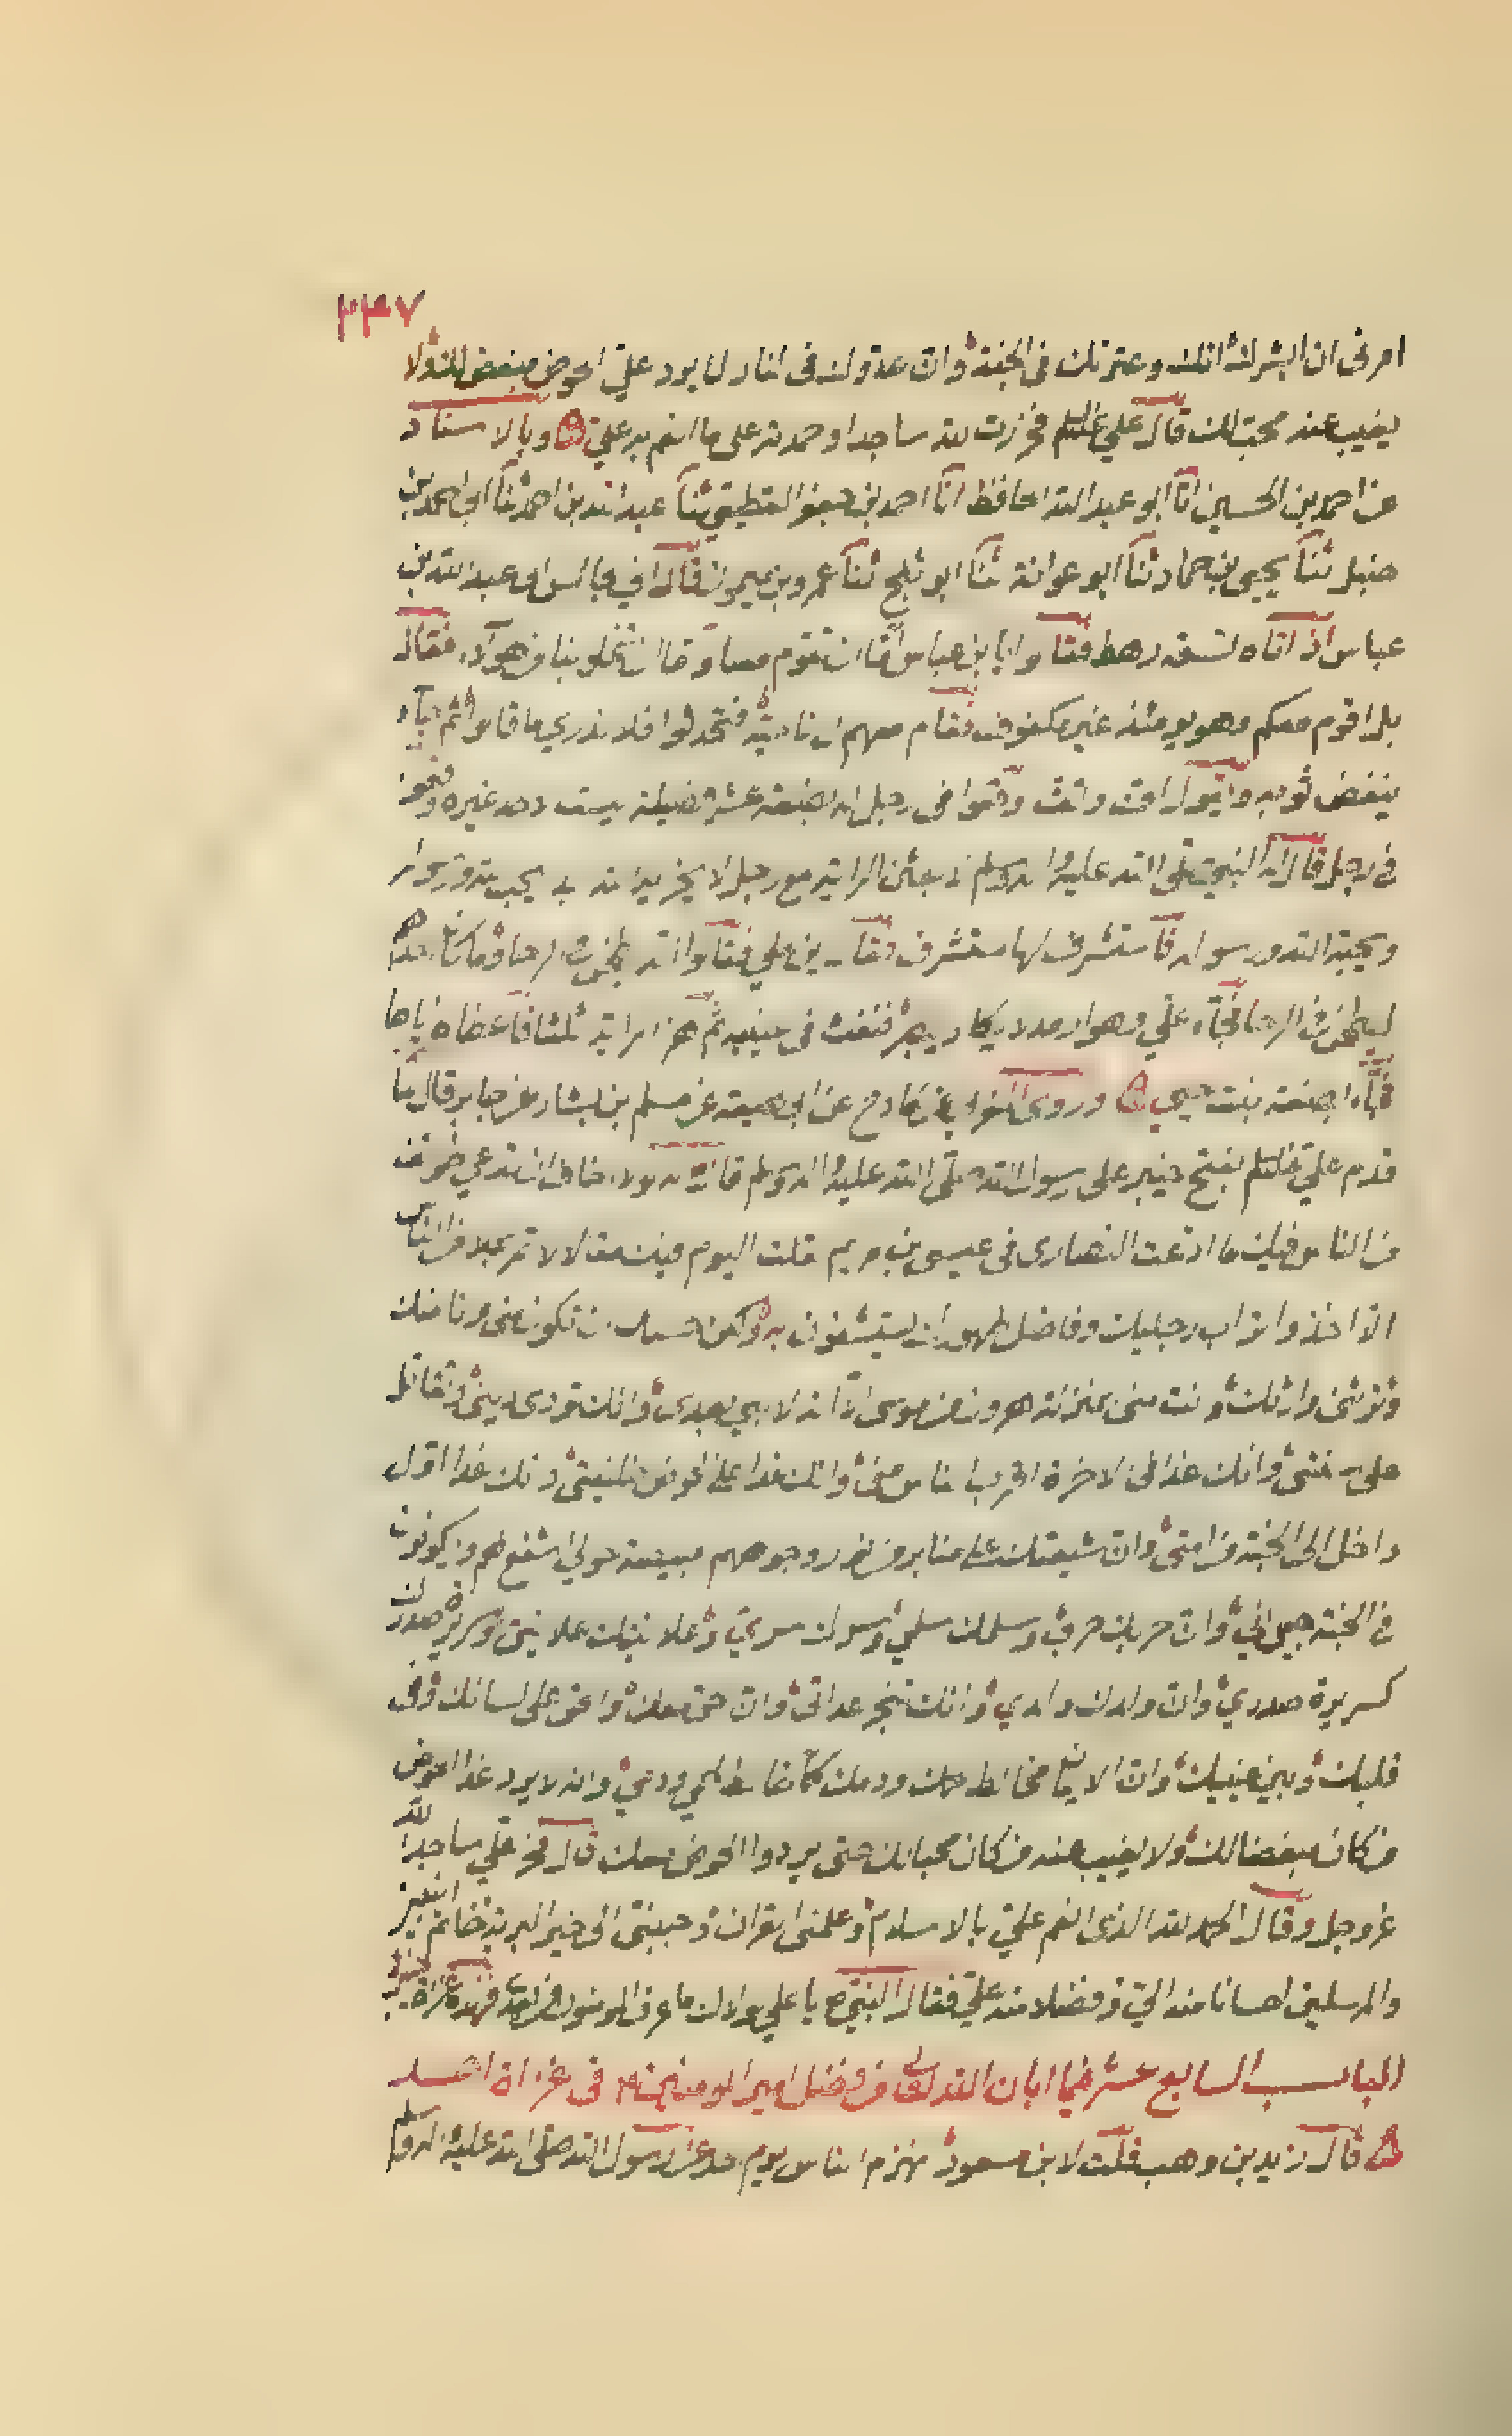 ٢٣٧
امرنى ان ابشرك انك وعترتك فى الجنة وان عدوك فى النار لا يرد علىّ الحوض مبغض لك ولا
يغيب عنه محبّ لك قال علي فخررت لله ساجدا وحمدته على ما انعم به علىّ وبالاسناد
عن احمد بن الحسين انا ابو عبد الله الحافظ انا احمد بن جعفر القطيعي ثنا عبد الله بن احمد ثنا ابى احمد بن
حنبل ثنا يحيى بن حماد ثنا ابو عوانة ثنا ابو بلج ثنا عمرو بن ميمون قال انى لجالس الى عبد الله بن
عباس اذ اتاه تسعة رهط فقالوا يا بن عباس اما ان تقوم معنا واما ان تخلو بنا من هؤلاء فقال
بل اقوم معكم وهو يومئذ غير مكفوف فقام معهم فتحدثوا فلا ندري ما قالوا ثم جاء
ينفض ثوبه ويقول اف وتف وقعوا فى رجل له بضعة عشر فضيلة ليست لاحد غيره وقعوا
فى رجل قال له النبي صلى الله عليه واله وسلم لابعثن الراية مع رجلا لا يخزيه الله يحب الله ورسوله
ويحبه الله ورسوله فاستشرف لها مستشرف فقال اين علي فقالوا انه يطحن فى الرحا وما كان احدهم
ليطحن فى الرحا فجاء علي وهو ارمد لا يكاد يبصر فنفث فى عينيه ثم هز الراية ثلثا فاعطاه اياها
فجاء بصفية بنت حيي وروى عن كادح عن ابى لهيعة عن مسلم بن يشار عن جابر قال لما
قدم علي بفتح خيبر على رسول الله صلى الله عليه واله وسلم قال له لولا اخاف ان تدعي طوائف
من الناس فيك ما ادعت النصارى فى عيسى بن مريم قلت اليوم فيك مقالا لا تمر بملا من الناس
الا اخذوا تراب رجليك وفاضل طهورك يستشفون به ولكن حسبك ان تكون منى وانا منك
وترثنى وارثك وانت منى بمنزلة هرون من موسى الا انه لا نبي بعدى وانك تودى دينى وتقاتل
على سنتى وانك غدا فى الاخرة اقرب الناس منى وانك غدا على الحوض خليفتى وانك غدا اول
داخل الى الجنة من امتى وان شيعتك على منابر من نور وجوههم مبيضة حولي اشفع لهم ويكونون
فى الجنة جيراني وان حربك حربي وسلمك سلمي وسرك سري وعلانيتك علانيتى وسريرة صدرك
كسريرة صدري وان ولدك ولدي وانك تنجز عداتى وان الحق معك والحق على لسانك وفى
قلبك وبين عينيك وان الايمان مخالط لحمك ودمك كما خالط لحمي ودمي وانه لا يرد غدا الحوض
من كان مبغضا لك ولا يغيب عنه من كان محبا لك حتى يردوا الحوض معك قال فخر علي ساجدا لله
عز وجل وقال الحمد لله الذى انعم علىّ بالاسلام وعلمنى القران وحببنى الى خير البرية خاتم النبيين
والمرسلين احسانا منه الىّ وفضلا منه علىّ فقال النبي ص يا علي لولاك ما عرف المومنون من بعدى
الباب السابع عشر فيما ابان الله تعالى من فضل امير المومنين فى غزاة احد
قال زيد بن وهب قلت لابن مسعود انهزم الناس يوم احد عن رسول الله صلى الله عليه واله وسلم